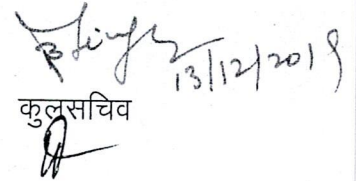 13/12/2019
कुलसचिव